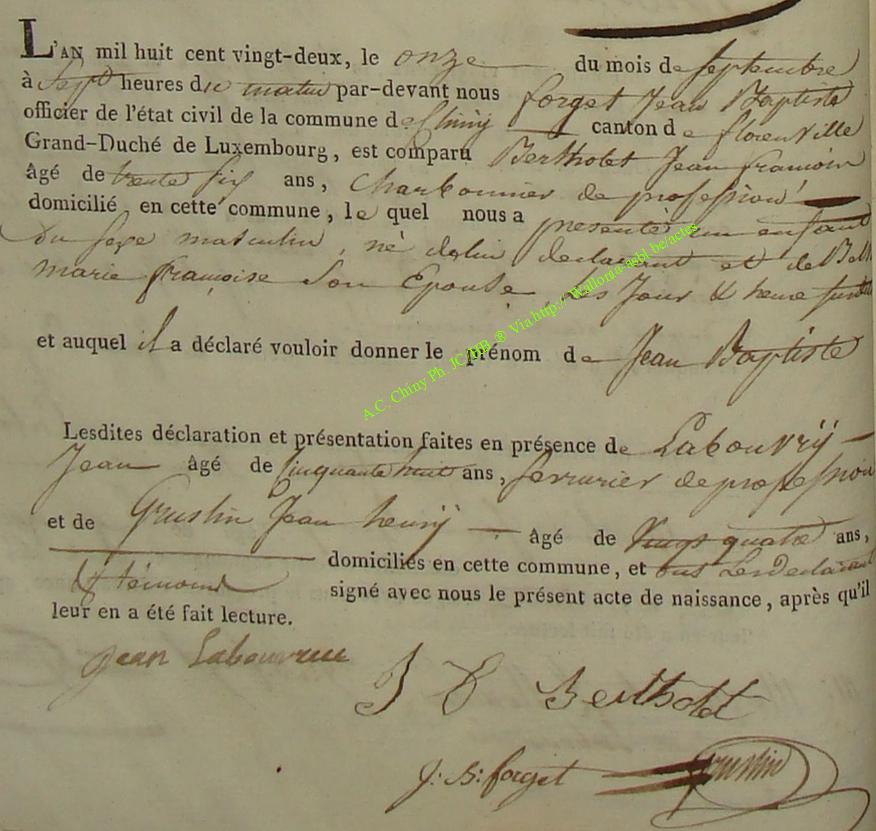 L'AN mil huit cent vingt-deux, le onze du mois de Septembre
à Sept heures du matin par-devant nous forget Jean Baptiste
officier de l'état civil de la commune de Chiny canton de florenville
Grand-Duché de Luxembourg, est comparu Bertholet Jean francois
âgé de trente six ans, charbonnier de profession
domicilié en cette commune, le quel nous a presenté un enfant
du sexe masculin, né de lui declarant et de
marie françoise Son Epouse, les Jour & heure
et auquel il a déclaré vouloir donner le prénom de Jean Baptiste
Lesdites déclaration et présentation faites en présence de Labouvrÿ
Jean âgé de Cinquante huit ans, serrurier de profession
et de Grustin Jean henrÿ âgé de Vingt quatre ans,
domiciliés en cette commune, et ous Les declarant
& témoins signé avec nous le présent acte de naissance, après qu'il
leur en a été fait lecture.
Jean Labouvrie
J Bertholet
J: B: forget grustin
A.C. Chiny Ph. JC HB ® Via http://Wallonia-asbl.be/actes